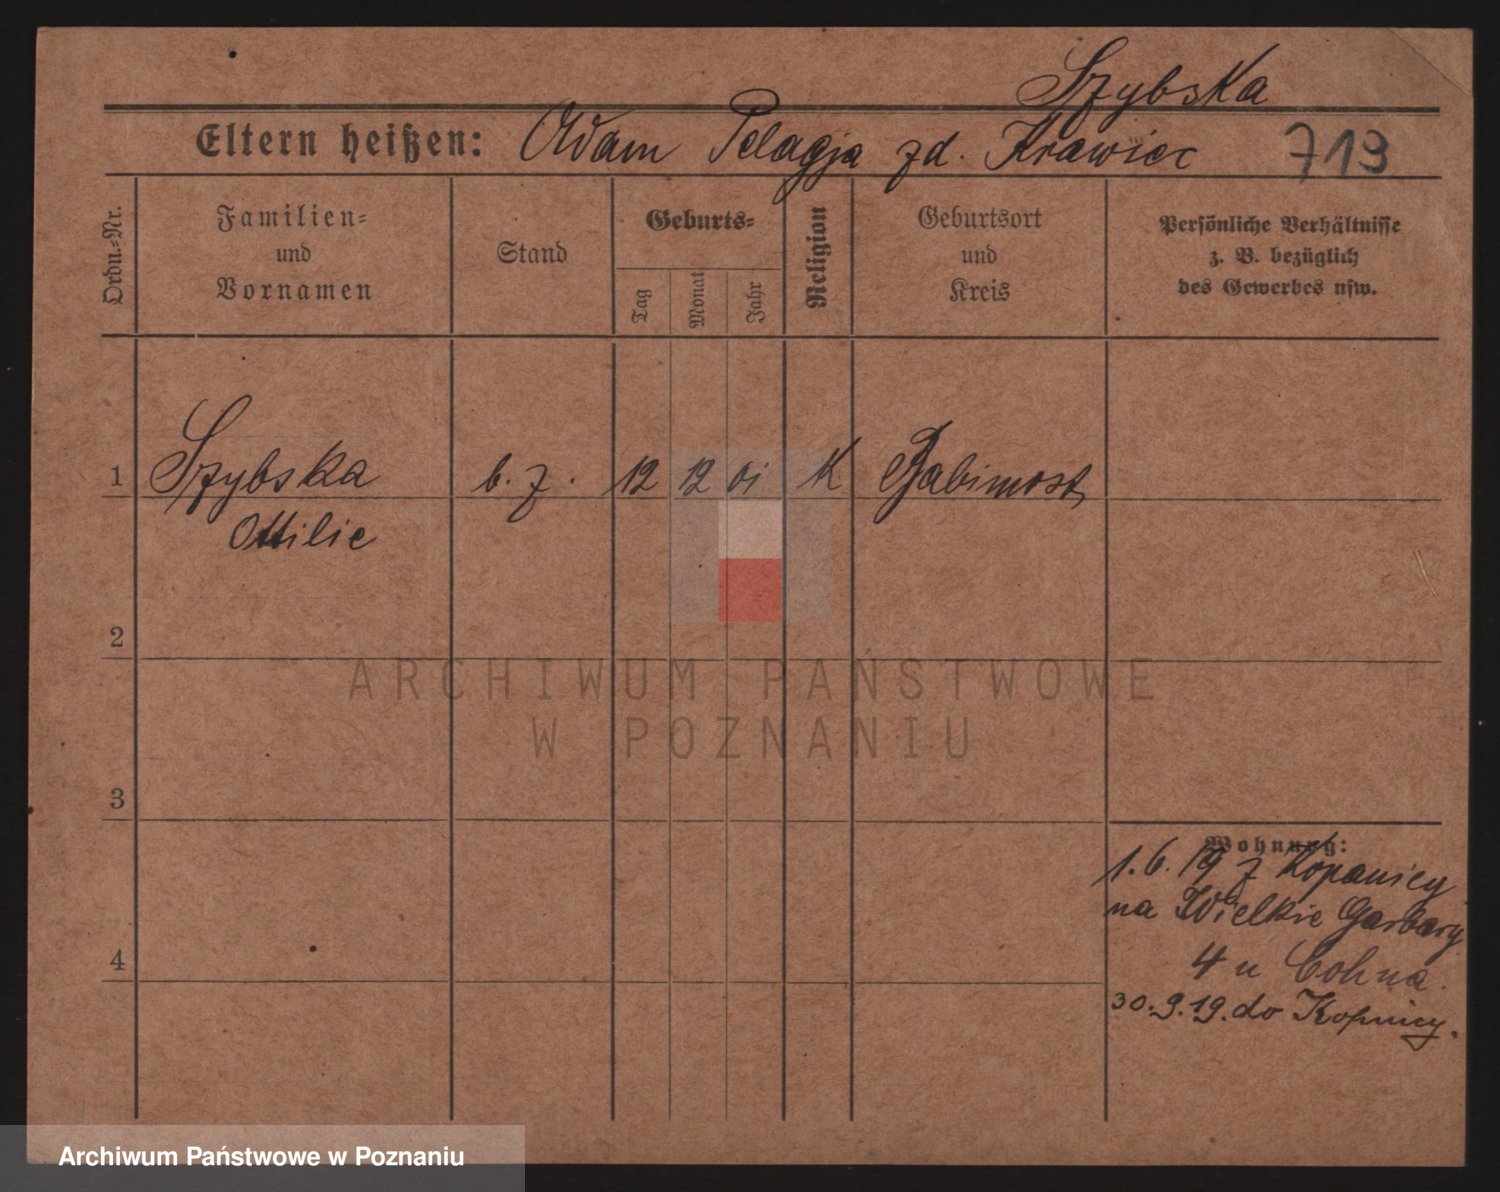 Szybska
Eltern heißen: Adam Pelagja zd. Krawiec 719
Ordn.=Nr.
Familien=
und
Vornamen
Stand
Geburts=
Tag
Monat
Jahr
Religion
Geburtsort
und
Kreis
Persönliche Verhältnisse
z. B. bezüglich
des Gewerbes usw.
1 Szybska b. z. 12 12 01 K Babimost
Ottilie
2
3
4
Wohnung:
1.6.19 z Kopanicy
na Wielkie Garbary
4 u Cohna.
30.9.19. do Kopnicy.
ARCHIWUM PAŃSTWOWE
W POZNANIU
Archiwum Państwowe w Poznaniu